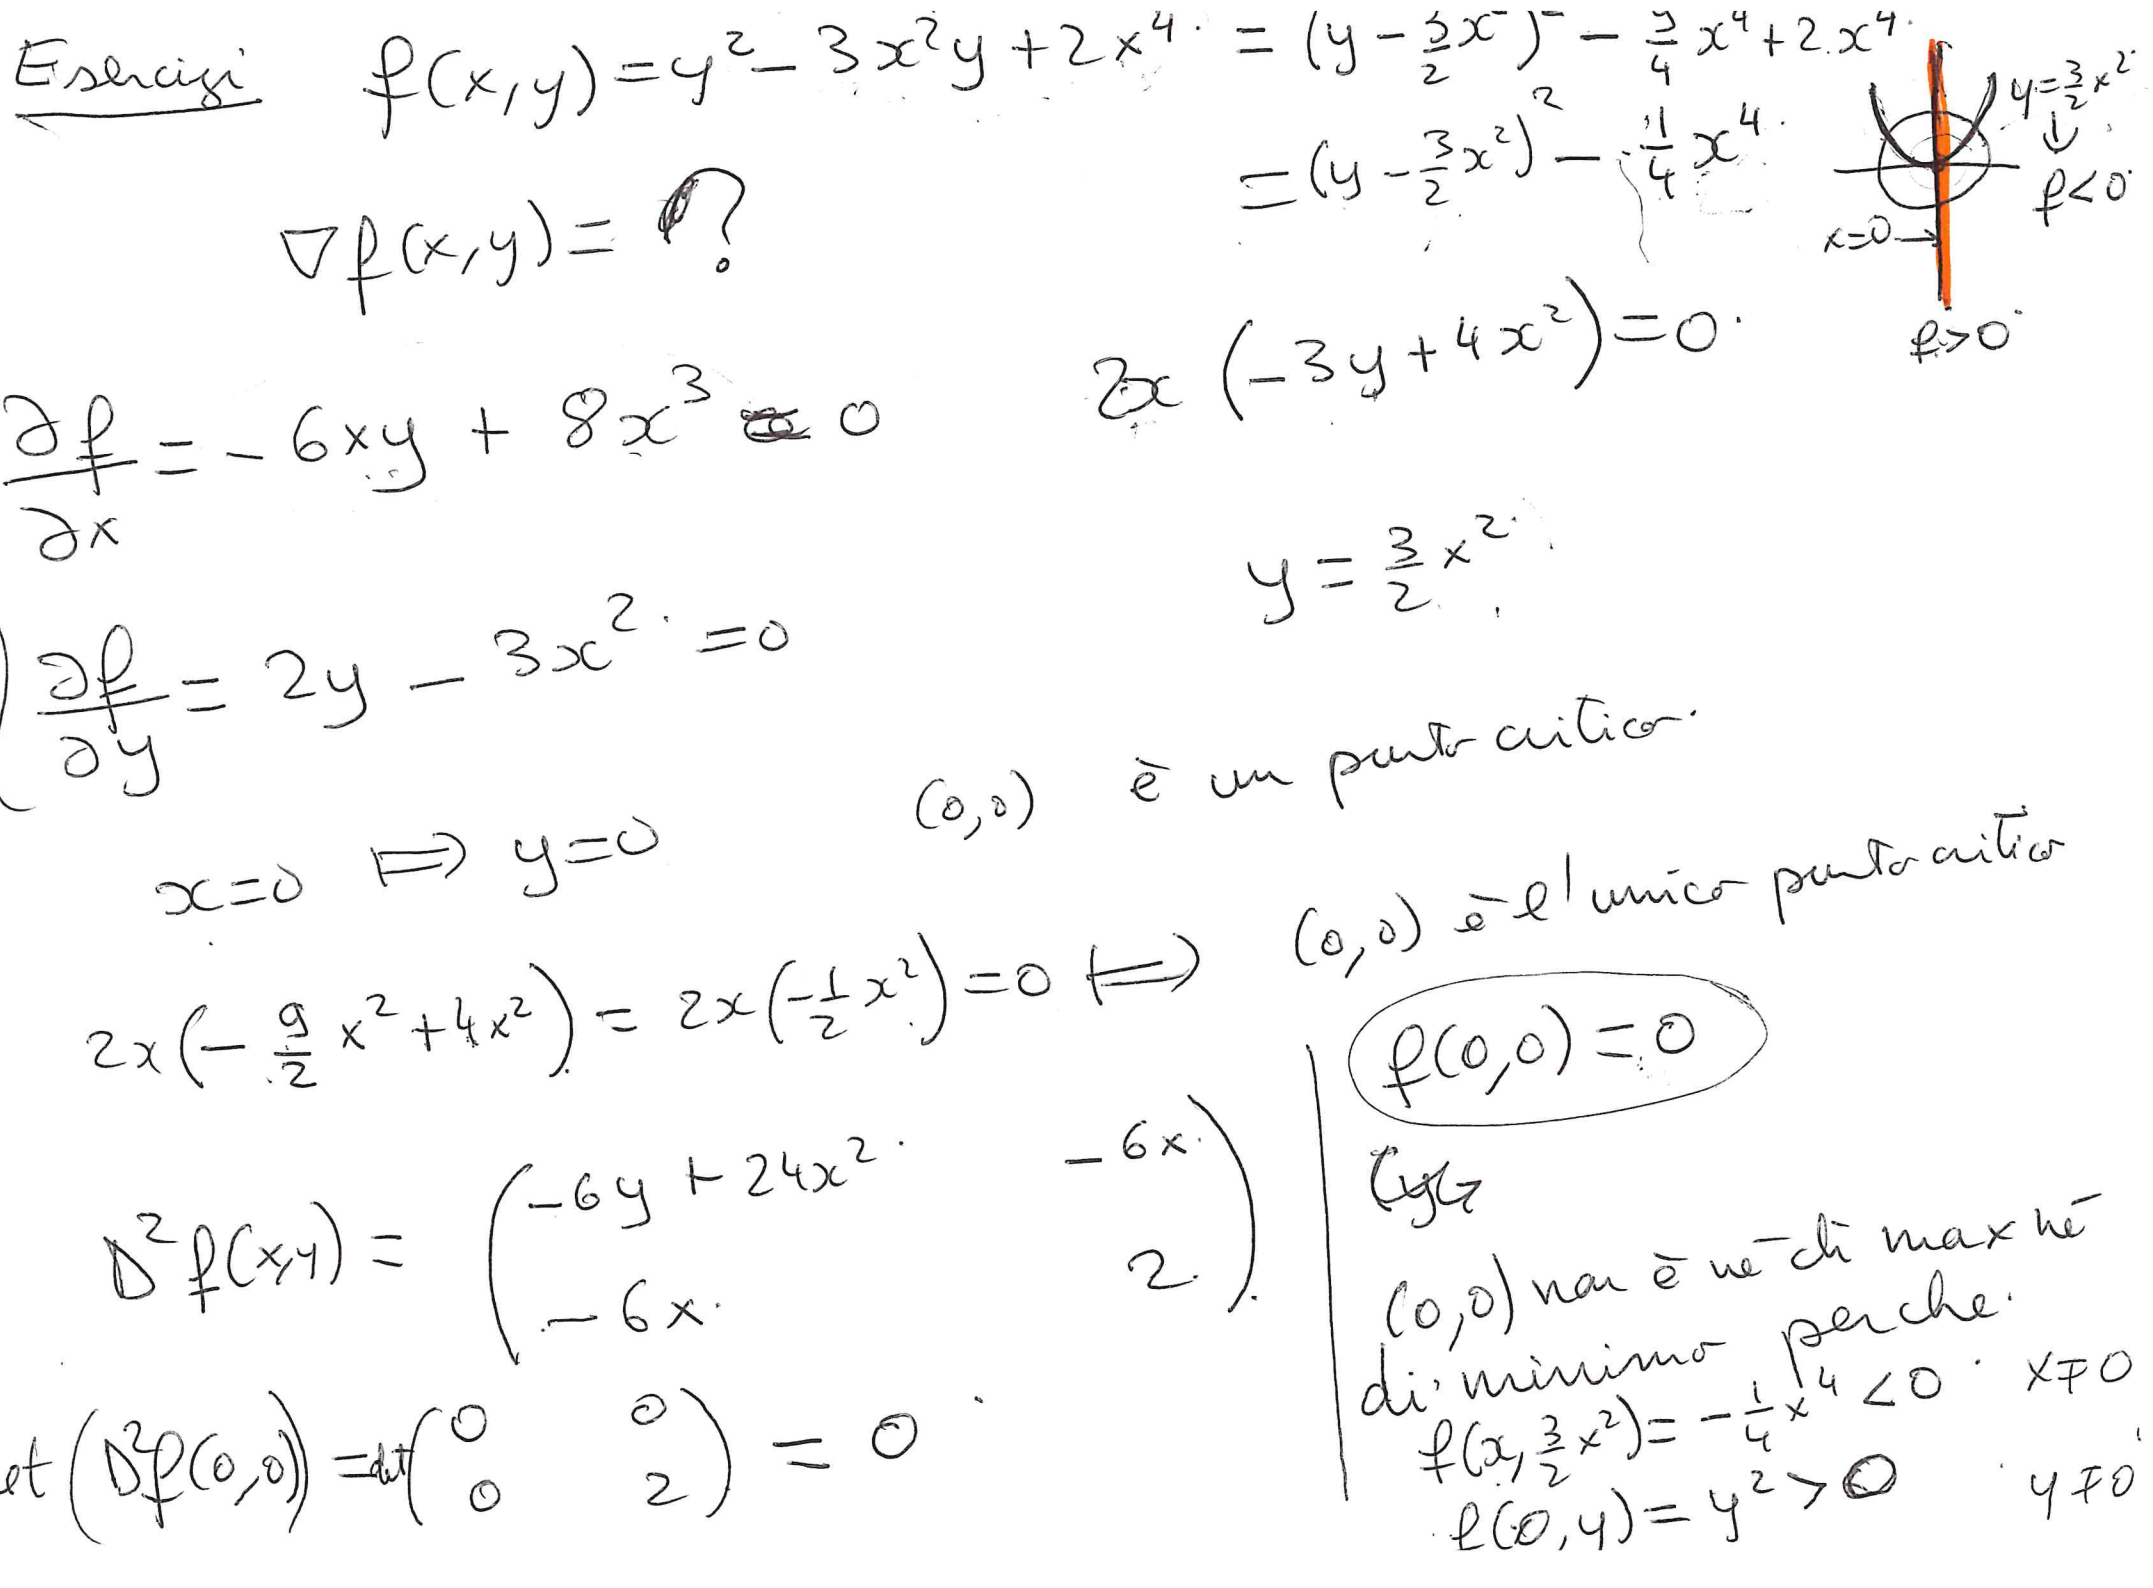 Esercizi f(x,y)=y²-3x²y+2x⁴ = (y-3/2x²)² - 9/4x⁴+2x⁴
=(y-3/2x²)² - 1/4x⁴
y=3/2x²
⇓
f<0
x=0→
f>0
∇f(x,y)=?
∂f/∂x = -6xy + 8x³ = 0
2x(-3y+4x²)=0
∂f/∂y = 2y - 3x² =0
y = 3/2 x²
x=0 ⟹ y=0 (0,0) è un punto critico.
2x(-9/2x²+4x²) = 2x(-1/2x²)=0 ⟺ (0,0) è l'unico punto critico
f(0,0)=0
D²f(x,y) = ( -6y+24x² -6x
-6x 2 )
et(D²f(0,0)) =det( 0 0
0 2 ) = 0
(0,0) non è nè di max nè
di minimo perche.
f(x,3/2x²)= -1/4x⁴ <0 x≠0
f(0,y)= y²>0 y≠0